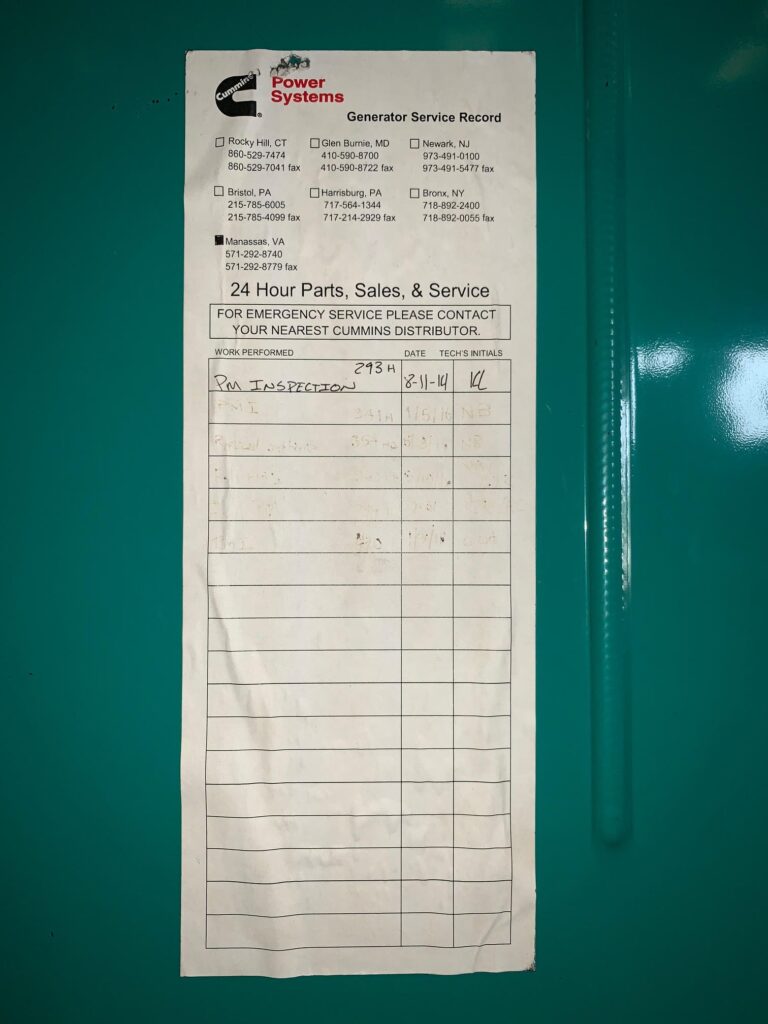 Cummins
Power
Systems
Generator Service Record
Rocky Hill, CT
860-529-7474
860-529-7041 fax
Glen Burnie, MD
410-590-8700
410-590-8722 fax
Newark, NJ
973-491-0100
973-491-5477 fax
Bristol, PA
215-785-6005
215-785-4099 fax
Harrisburg, PA
717-564-1344
717-214-2929 fax
Bronx, NY
718-892-2400
718-892-0055 fax
Manassas, VA
571-292-8740
571-292-8779 fax
24 Hour Parts, Sales, & Service
FOR EMERGENCY SERVICE PLEASE CONTACT
YOUR NEAREST CUMMINS DISTRIBUTOR.
WORK PERFORMED DATE TECH'S INITIALS
PM INSPECTION 293 H 8-11-14 KL